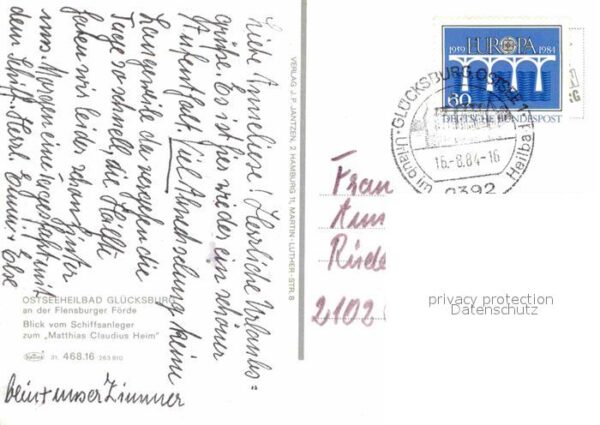 Liebe Anneliese! Herzliche Urlaubs-
grüße. Es ist hier wieder ein schöner
Aufenthalt. Viel Abwechslung keine
Langeweile da vergehen die
Tage so schnell, die Hälfte
haben wir leider schon hinter
uns. Morgen eine Tagesfahrt mit
dem Schiff. Herzl. Erwin + Else
OSTSEEHEILBAD GLÜCKSBURG
an der Flensburger Förde
Blick vom Schiffsanleger
zum „Matthias Claudius Heim"
31. 468.16 263 810
unser Zimmer
VERLAG J. P. JANTZEN, 2 HAMBURG 11, MARTIN-LUTHER-STR. 8
1959 EUROPA 1984
60
DEUTSCHE BUNDESPOST
GLÜCKSBURG, OSTSEE 1
16.-8.84-16
Urlaub im Heilbad
2392
Frau
Ann
Riede
2102
privacy protection
Datenschutz